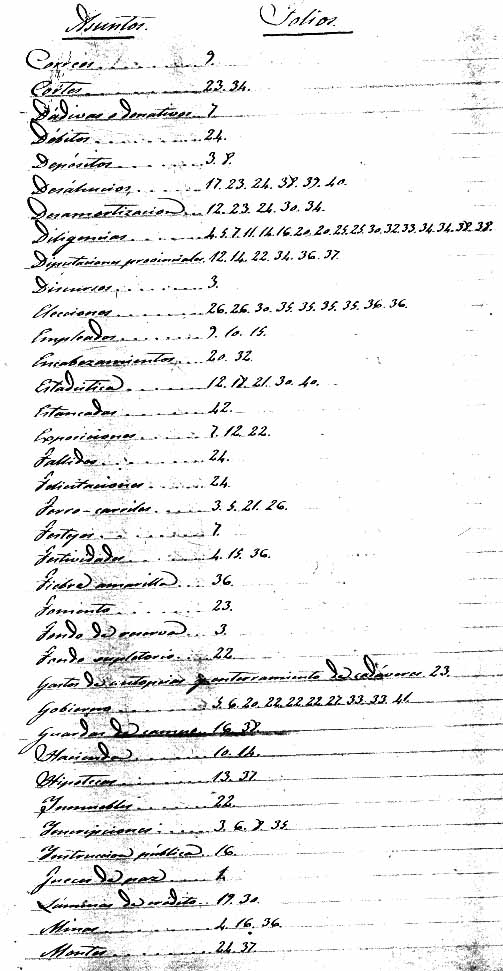 Asuntos. Folios.
Correos 9.
Cortes 23.34.
Dádivas o donativos 7
Débitos 24.
Depósitos 3.8.
Desahucios 17.23.24.38.39.40.
Desamortizacion 12.23.24.30.34.
Diligencias 4.5.7.11.14.16.20.20.25.25.30.32.33.34.34.38.38.
Diputaciones provinciales 12.14.22.34.36.37.
Discursos 3.
Elecciones 26.26.30.35.35.35.35.36.36.
Empleados 9.10.15.
Encabezamientos 20.32
Estadística 12.18.21.30.40.
Estancadas 42.
Exposiciones 7.12.22.
Fallidos 24.
Felicitaciones 24.
Ferro-carriles 3.5.21.26.
Festejos 7.
Festividades 4.15.36.
Fiebre amarilla 36.
Fomento 23.
Fondo de reserva 3.
Fondo supletorio 22
Gastos de autopsias y enterramiento de cadáveres 23.
Gobierno 5.6.20.22.22.22.27.33.33.41.
Guardas de 16.38.
Hacienda 10.14.
Hipotecas 13.37.
Inmuebles 22.
Inscripciones 3.6.8.35
Instruccion pública 16.
Jueces de paz
Láminas de crédito 19.30.
Minas 4.16.36.
Montes 24.37.